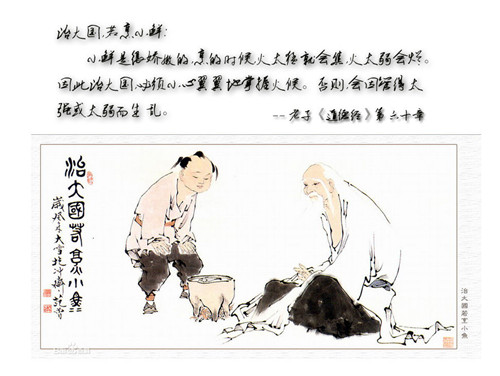 治大国,若烹小鲜:
小鲜是很娇嫩的,烹的时候火太强就会焦,火太弱会烂。
因此治大国,必须小心翼翼地掌握火候。否则,会因管得太
强或太弱而生乱。 -- 老子《道德经》第六十章
治大國若烹小魚
大雪抱冲齋
范曾
治大國若烹小魚